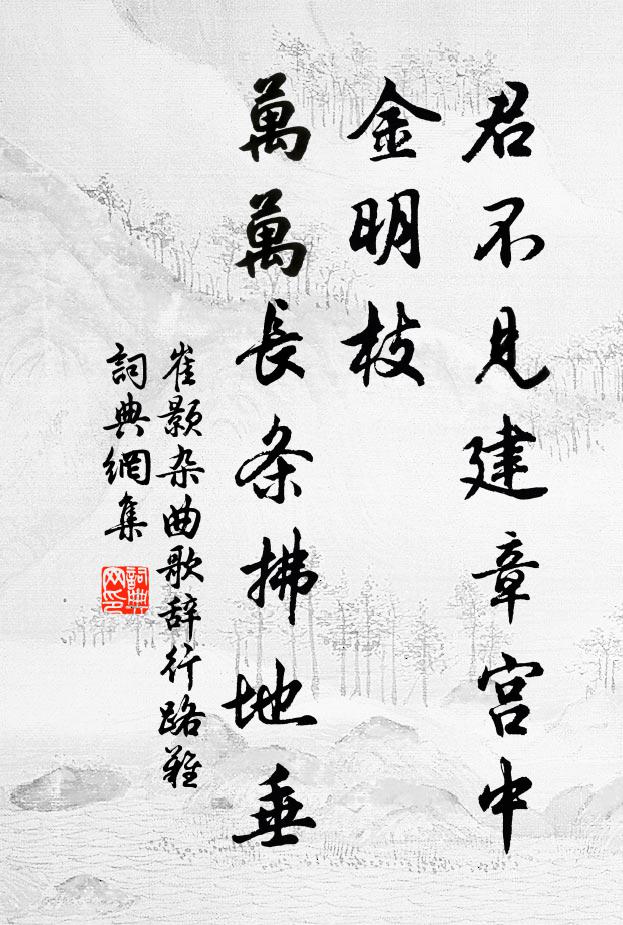 君不見建章宫中
金明枝
萬萬長条拂地垂
崔颢杂曲歌辞行路難
詞典網集
詞典网印